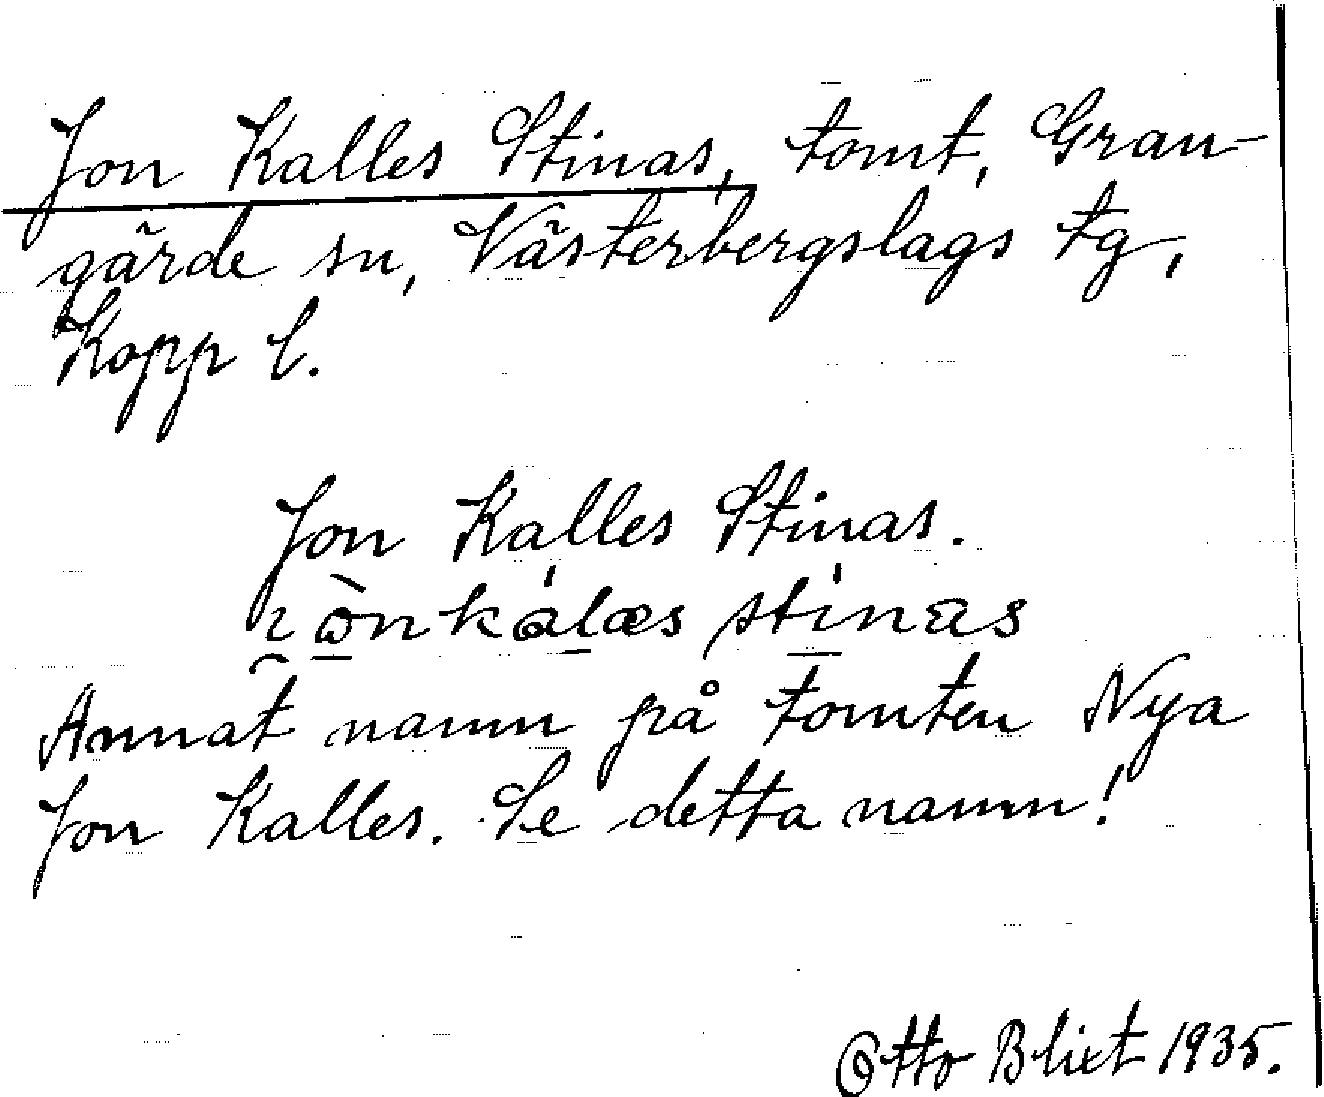 Jon Kalles Stinas, tomt, Gran-
gärde sn, Västerbergslags tg,
Kopp l.
Jon Kalles Stinas.
Annat namn på tomten Nya
Jon Kalles. Se detta namn!
Otto Blixt 1935.